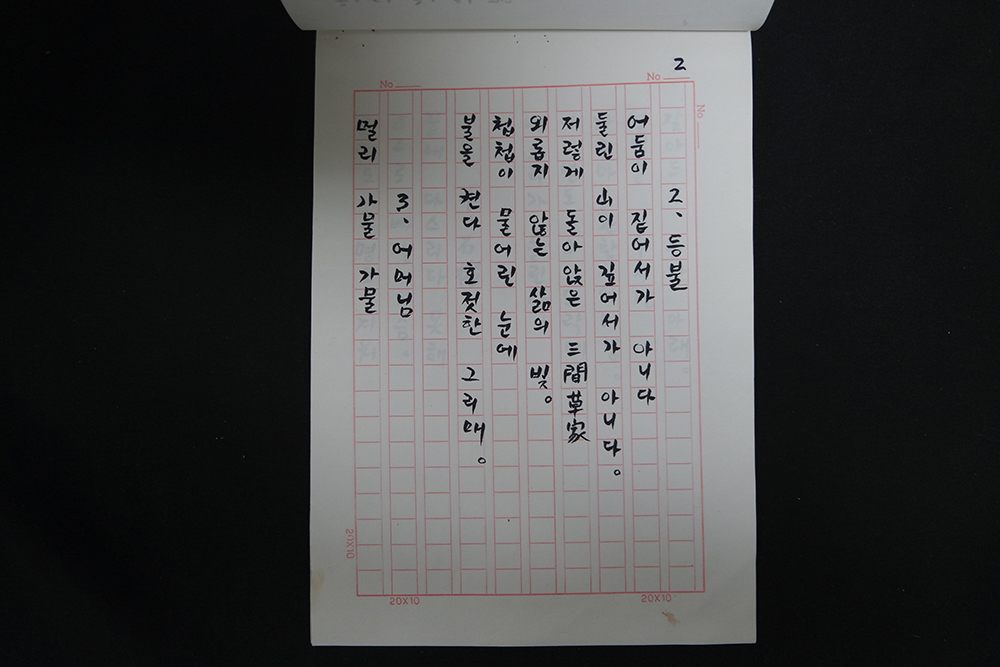 2
No
No
No
2、등불
어둠이 짙어서가 아니다
둘린 山이 깊어서가 아니다。
저렇게 돌아앉은 三間草家
외롭지 않는 삶의 빛。
첩첩이 물어린 눈에
불을 켠다 호젓한 그리매。
3、어머님
멀리 가물가물
20X10
20X10
20X10